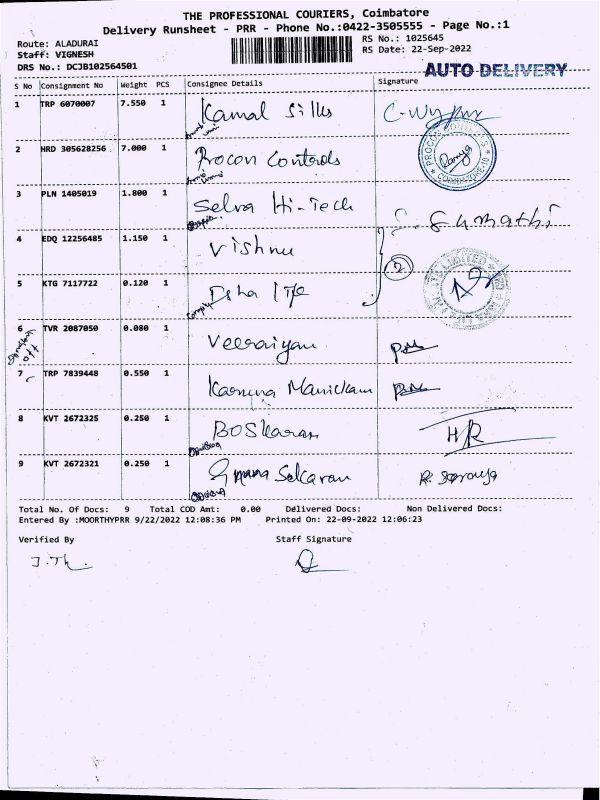 THE PROFESSIONAL COURIERS, Coimbatore
Delivery Runsheet - PRR - Phone No.:0422-3505555 - Page No.:1
Route: ALADURAI
Staff: VIGNESH
DRS No.: DCJB102564501
RS No.: 1025645
RS Date: 22-Sep-2022
AUTO DELIVERY
S No Consignment No Weight PCS Consignee Details Signature
1 TRP 6070007 7.550 1 Kamal Silks
2 HRD 305628256 7.000 1 Procon Controls
PROCON CONTROLS COIMBATORE-10 Ramya
3 PLN 1405019 1.800 1 Selva Hi-Tech
Sumathi
4 EDQ 12256485 1.150 1 Vishnu
2
5 KTG 7117722 0.120 1 Isha life
LIMITED
6 TVR 2087050 0.080 1 Veeraiyan
7 TRP 7839448 0.550 1 Karuna Manickam
8 KVT 2672325 0.250 1 BOSkaran
9 KVT 2672321 0.250 1 Gnana Sekaran
Total No. Of Docs: 9 Total COD Amt: 0.00 Delivered Docs: Non Delivered Docs:
Entered By :MOORTHYPRR 9/22/2022 12:08:36 PM Printed On: 22-09-2022 12:06:23
Verified By Staff Signature